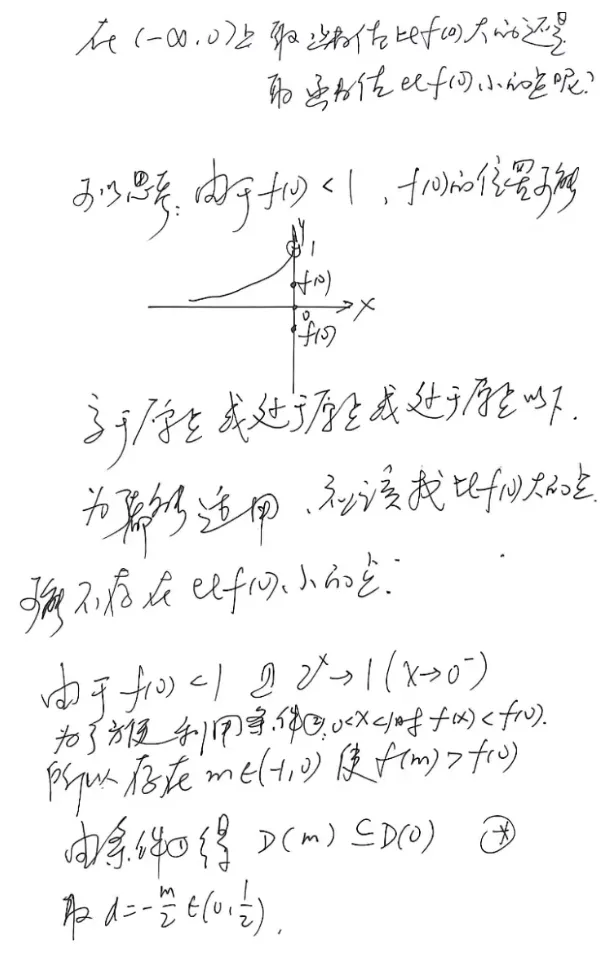 在(-∞,0)上取函数值比f(0)大的还是
取函数值比f(0)小的点呢?
可以思考:由于f(0)<1,f(0)的位置可能
y
1
f(0)
0
x
f(0)
高于原点或处于原点或处于原点以下.
为都能适用,应该找比f(0)大的点.
可能不存在比f(0)小的点.
由于f(0)<1且2^x→1(x→0^-)
为了方便利用条件②,0<x<1时f(x)<f(0).
所以存在m∈(-1,0)使f(m)>f(0)
由条件①得 D(m)⊆D(0) ⊛
取d=-m/2∈(0,1/2).